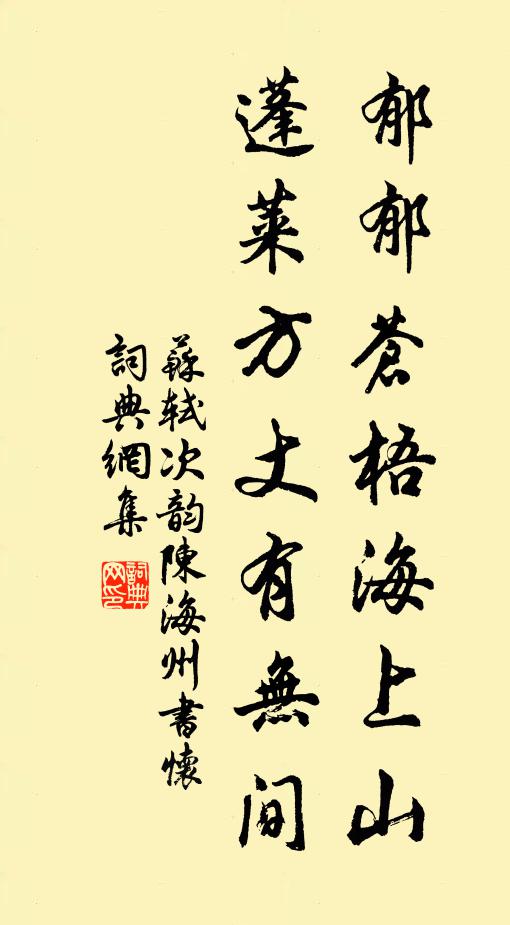 郁郁蒼梧海上山
蓬萊方丈有無間
蘇軾次韵陳海州書懷
詞典網集
詞典网印